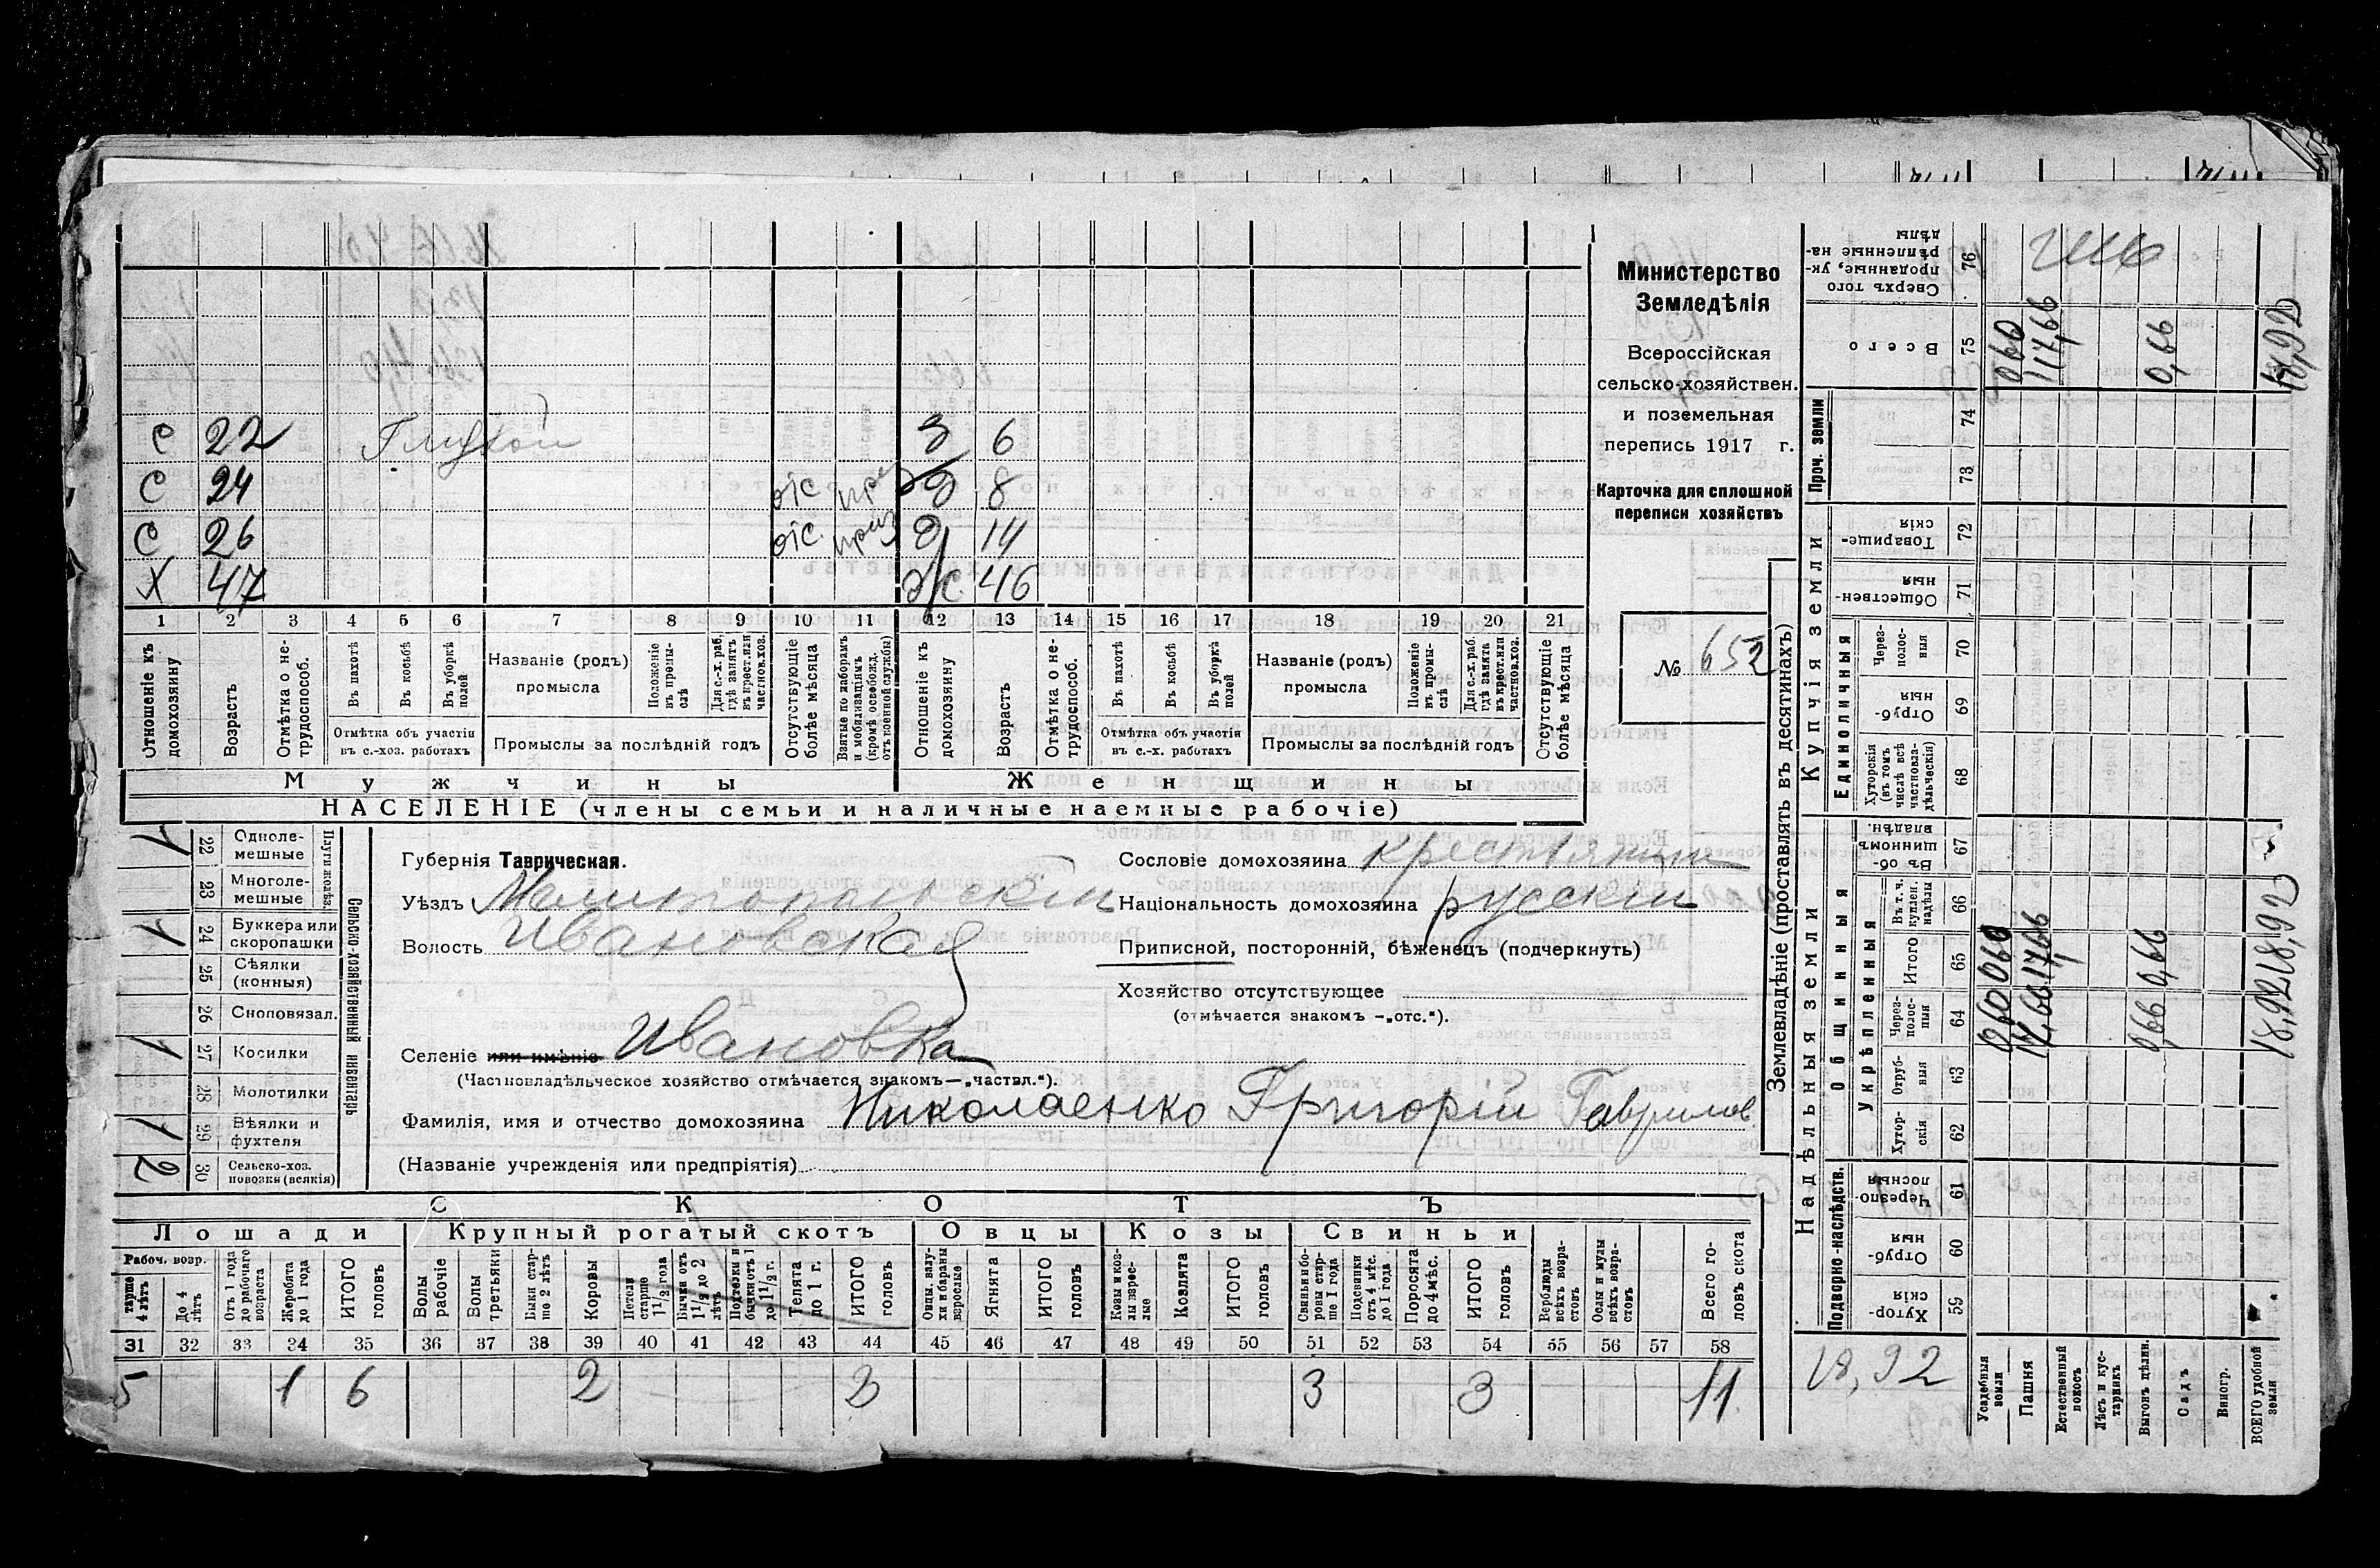 С 22 Глухой З 6
С 24 отс приз Д 8
С 26 отс. приз Д 14
Х 47 ж 46
1 2 3 4 5 6 7 8 9 10 11 12 13 14 15 16 17 18 19 20 21
Отношеніе къ домохозяину
Возрастъ
Отмѣтка о не-трудоспособ.
Въ пахотѣ
Въ косьбѣ
Въ уборкѣ полей
Отмѣтка объ участіи въ с.-хоз. работахъ
Названіе (родъ) промысла
Положеніе въ промы-слѣ
Для с.-х. раб. гдѣ занятъ въ крест. или частнов. хоз.
Промыслы за послѣдній годъ
Отсутствующіе болѣе мѣсяца
Взятые по наборамъ и мобилизаціямъ (кромѣ освобожд. отъ военной службы)
Отношеніе къ домохозяину
Возрастъ
Отмѣтка о не-трудоспособ.
Въ пахотѣ
Въ косьбѣ
Въ уборкѣ полей
Отмѣтка объ участіи въ с.-х. работахъ
Названіе (родъ) промысла
Положеніе въ промы-слѣ
Для с.-х. раб. гдѣ занята въ крест. или частнов. хоз.
Промыслы за послѣдній годъ
Отсутствующіе болѣе мѣсяца
Мужчины Женщины
НАСЕЛЕНІЕ (члены семьи и наличные наемные рабочіе)
Министерство
Земледѣлія
Всероссійская
сельско-хозяйствен.
и поземельная
перепись 1917 г.
Карточка для сплошной
переписи хозяйствъ
№ 652
Сельско-хозяйственный инвентарь
1 22 Одноле-мешные
23 Многоле-мешные
1 24 Буккера или скоропашки
25 Сѣялки (конныя)
26 Сноповязал.
1 27 Косилки
28 Молотилки
1 29 Вѣялки и фухтеля
2 30 Сельско-хоз. повозки (всякія)
Губернія Таврическая.
Уѣздъ Мелитопольскій
Волость Ивановская
Селеніе или имѣніе Ивановка
(Частновладѣльческое хозяйство отмѣчается знакомъ—„частвл.“).
Фамилія, имя и отчество домохозяина Николаенко Григорій Гаврилов.
(Названіе учрежденія или предпріятія)
Сословіе домохозяина крестьянин
Національность домохозяина русскій
Приписной, посторонній, бѣженецъ (подчеркнуть)
Хозяйство отсутствующее
(отмѣчается знакомъ —„отс.“).
СКОТЪ
Лошади Крупный рогатый скотъ Овцы Козы Свиньи
Рабоч. возр.
тарше 4 лѣтъ
До 4 лѣтъ
Отъ 1 года до рабочаго возраста
Жеребята до 1 года
ИТОГО головъ
Волы рабочіе
Волы третьяки
Быки стар-ше 2 лѣтъ
Коровы
Нетели старше 1 1/2 года
Бычки отъ 1 1/2 до 2 лѣтъ
Подтелки и бычки отъ 1 до 1 1/2 г.
Телята до 1 г.
ИТОГО головъ
Овцы, валу-хи и бараны взрослые
Ягнята
ИТОГО головъ
Козы и коз-лы взрос-лые
Козлята
ИТОГО головъ
Свиньи и бо-ровы стар-ше 1 года
Подсвинки отъ 4 мѣс. до 1 года
Поросята до 4 мѣс.
ИТОГО головъ
Верблюды всѣхъ возра-стовъ
Ослы и мулы всѣхъ возра-стовъ
Всего го-ловъ скота
31 32 33 34 35 36 37 38 39 40 41 42 43 44 45 46 47 48 49 50 51 52 53 54 55 56 57 58
5 1 6 2 2 3 3 11
Землевладѣніе (проставлять въ десятинахъ)
Надѣльныя земли Купчія земли Проч. земли
Подворно-наслѣдств. Общинныя Укрѣпленныя Единоличныя
Сверхъ того проданные, ук-рѣпленные на-дѣлы 76
Всего 75 0,60 17,66 0,66 18,92
74
73
Товарище-скія 72
Обществен-ныя 71
Через-полос-ныя 70
Отруб-ныя 69
Хуторскія (въ томъ числѣ всѣ частновла-дѣльческія) 68
Въ об-щинномъ владѣн. 67
Въ т. ч. куплен. надѣлы 66
ИТОГО 65 0,60 17,66 0,66 18,92
Через-полос-ныя 64 0,60 17,66 0,66 18,92
Отруб-ныя 63
Хутор-скія 62
Черезпо-лосныя 61
Отруб-ныя 60
Хутор-скія 59
18,92
Усадебныя земли
Пашня
Естественный покосъ
Лѣсъ и кус-тарникъ
Выгонъ цѣлин.
Садъ
Виногр.
ВСЕГО удобной земли